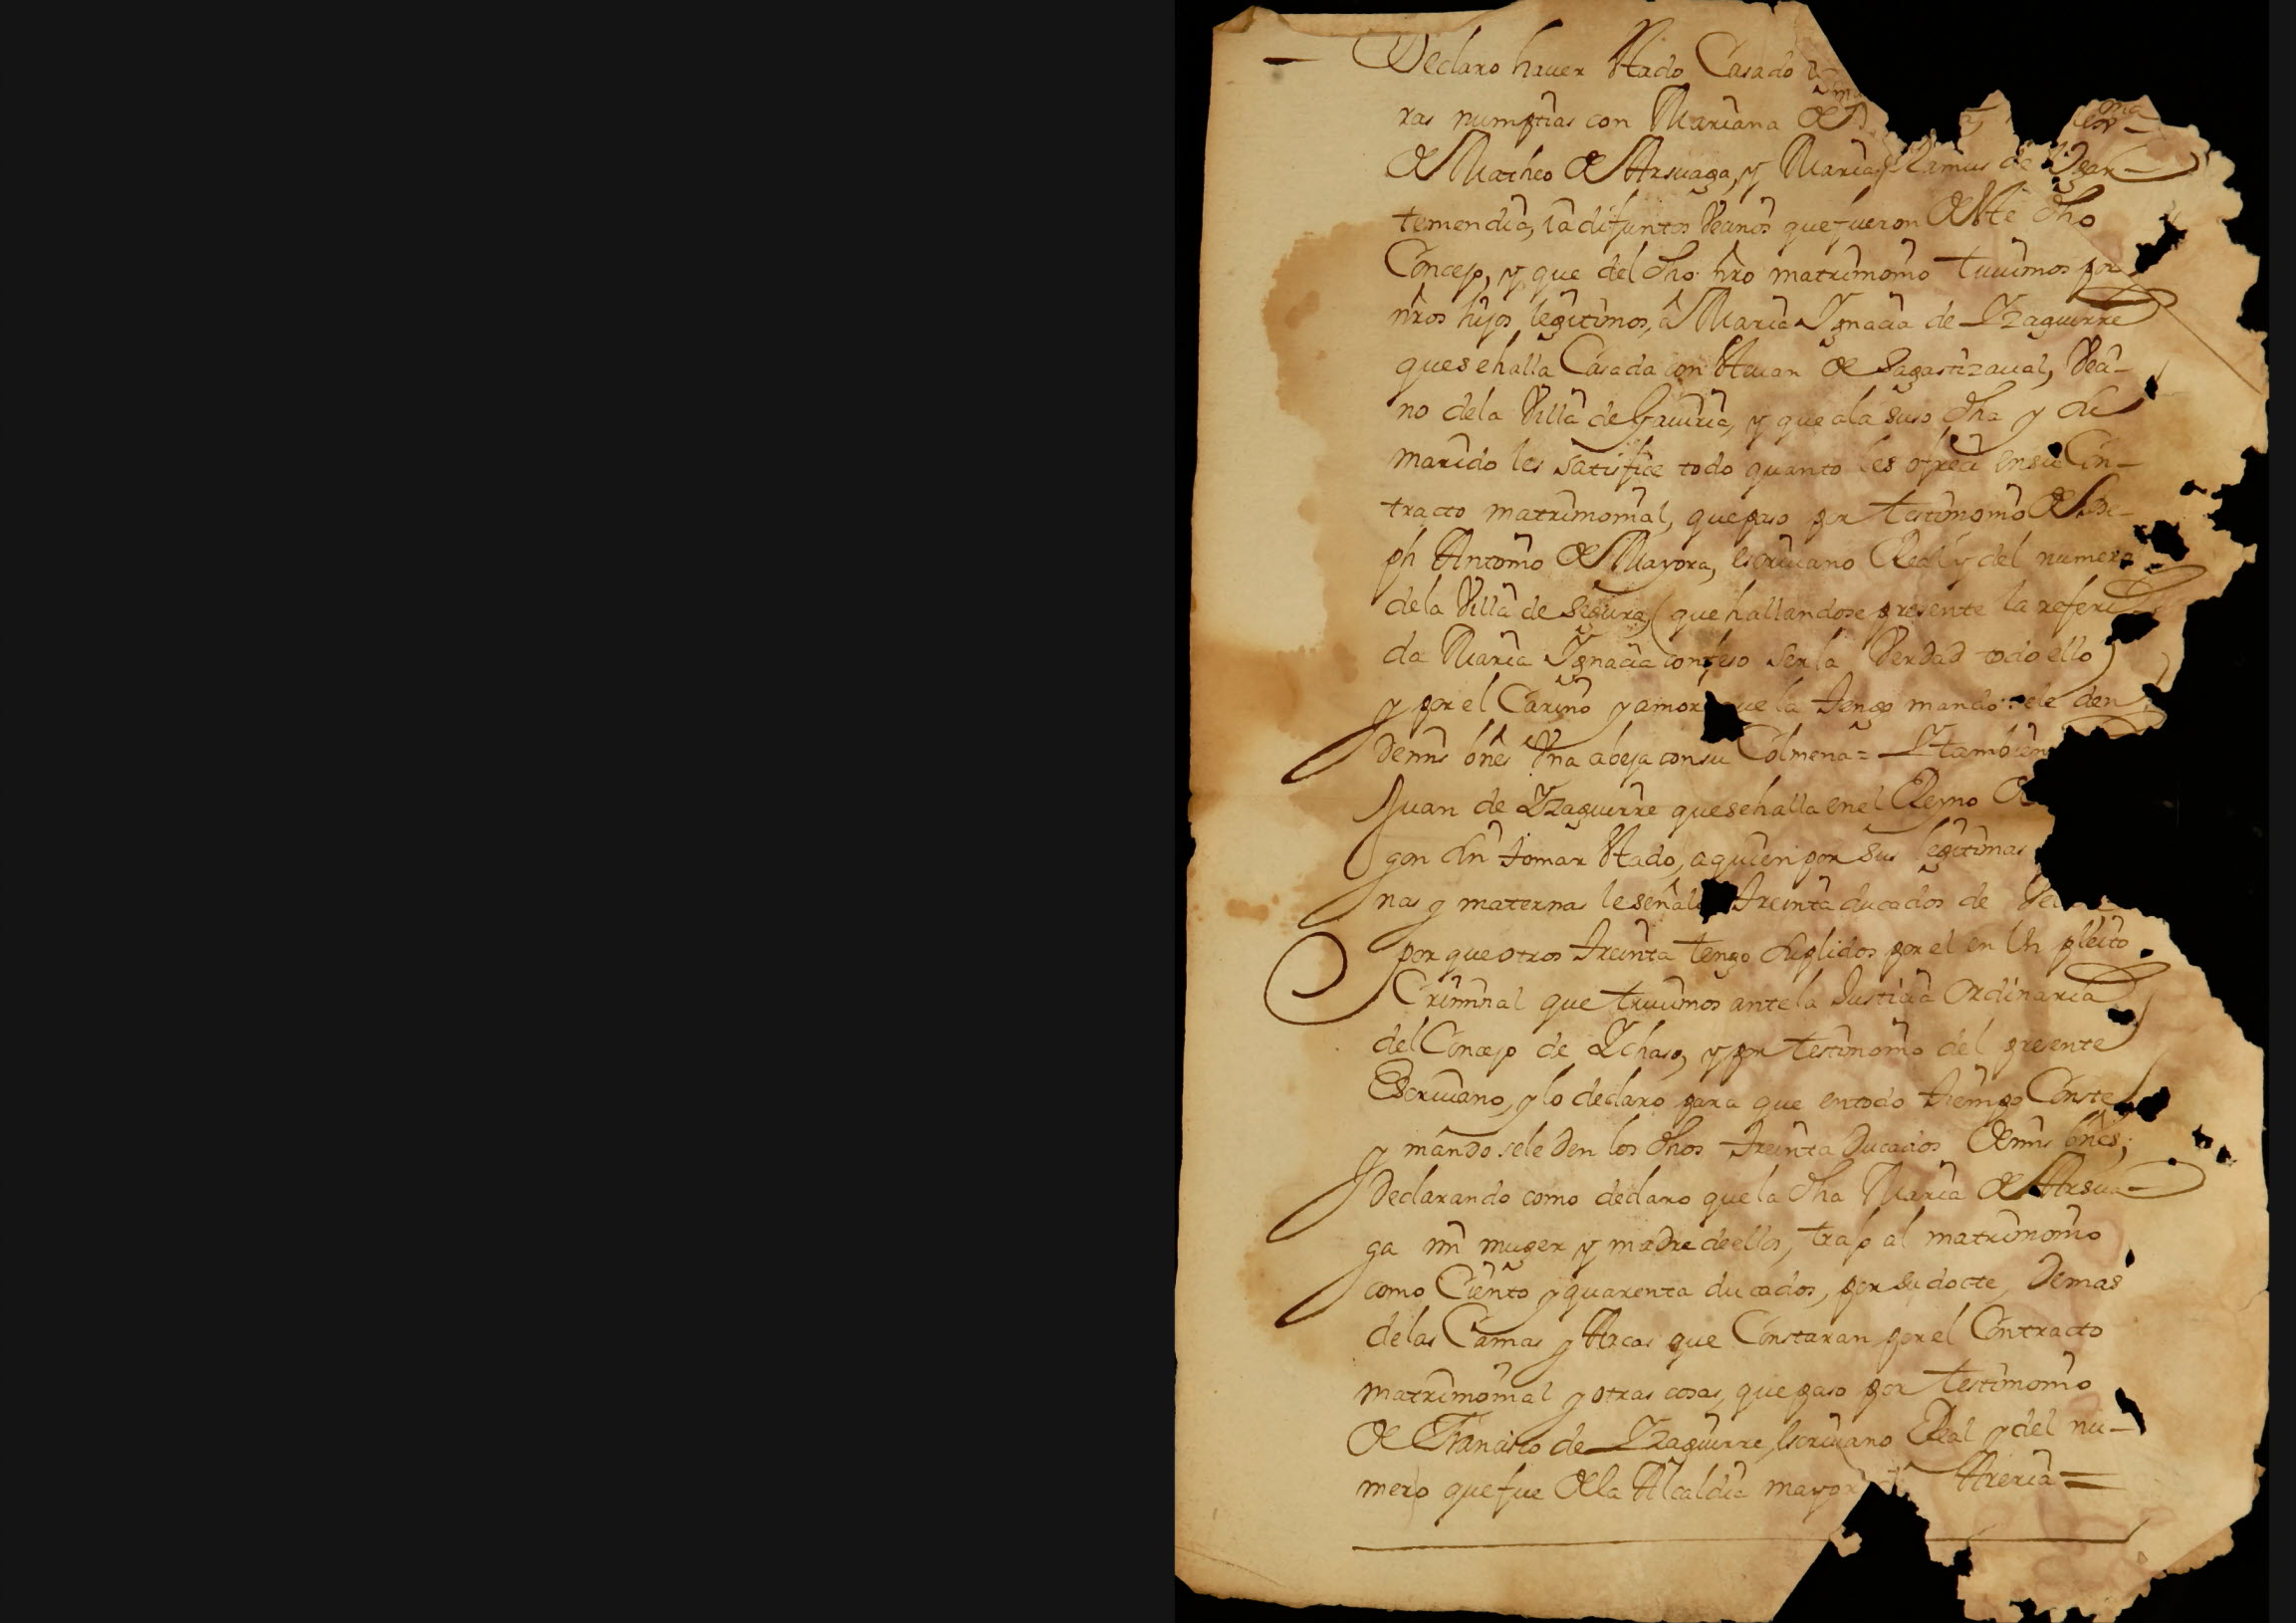 Declaro hauer Stado Casado
ras numptias con Mariana de
de Matheo de Arsuaga, y Maria Ramus de Vgar-
temendia, ia difuntos Veanos que fueron de Ste dho
Concejo, y que del dho nro matrimonio tuuimos por
nros hijos legitimos, â Maria Ygnacia de Yzaguirre
que se halla Casada con Juan de Sagastizaual, Vea-
no de la Villa de Gauiria, y que a la suso dha y su
marido les satisfice todo quanto les ofreci en su Con-
tracto matrimonial, que paso por testimonio de Jose-
ph Antonio de Mayora, escriuano Real y del numero
de la Villa de Segura, (que hallandose presente la referi
da Maria Ygnacia confeso ser la Verdad todo ello)
y por el Cariño y amor que la tengo mando se le den
de mis bnes Vna abeja con su Colmena = Y tambien
Juan de Yzaguirre que se halla en el Reyno de
gon sin tomar Stado, a quien por sus legitimas
nas y maternas le señalo treinta ducados de
por que otros treinta tengo suplidos por el en Un pleito
Criminal que truuimos ante la Justicia Ordinaria
del Concejo de Ychaso, y por testimonio del presente
Escriuano, y lo declaro para que en todo tiempo Conste
y mando se le den los dhos treinta Ducados de mis bnes;
Declarando como declaro que la dha Maria de Arsua-
ga mi muger y madre de ellos, trajo al matrimonio
como Ciento y quarenta ducados, por su docte, Demas
de las Camas y Arcas que Constaran por el Contracto
matrimonial y otras cosas, que paso por testimonio
de Francisco de Yzaguirre, escriuano Real y del nu-
mero que fue de la Alcaldia mayor Areria =